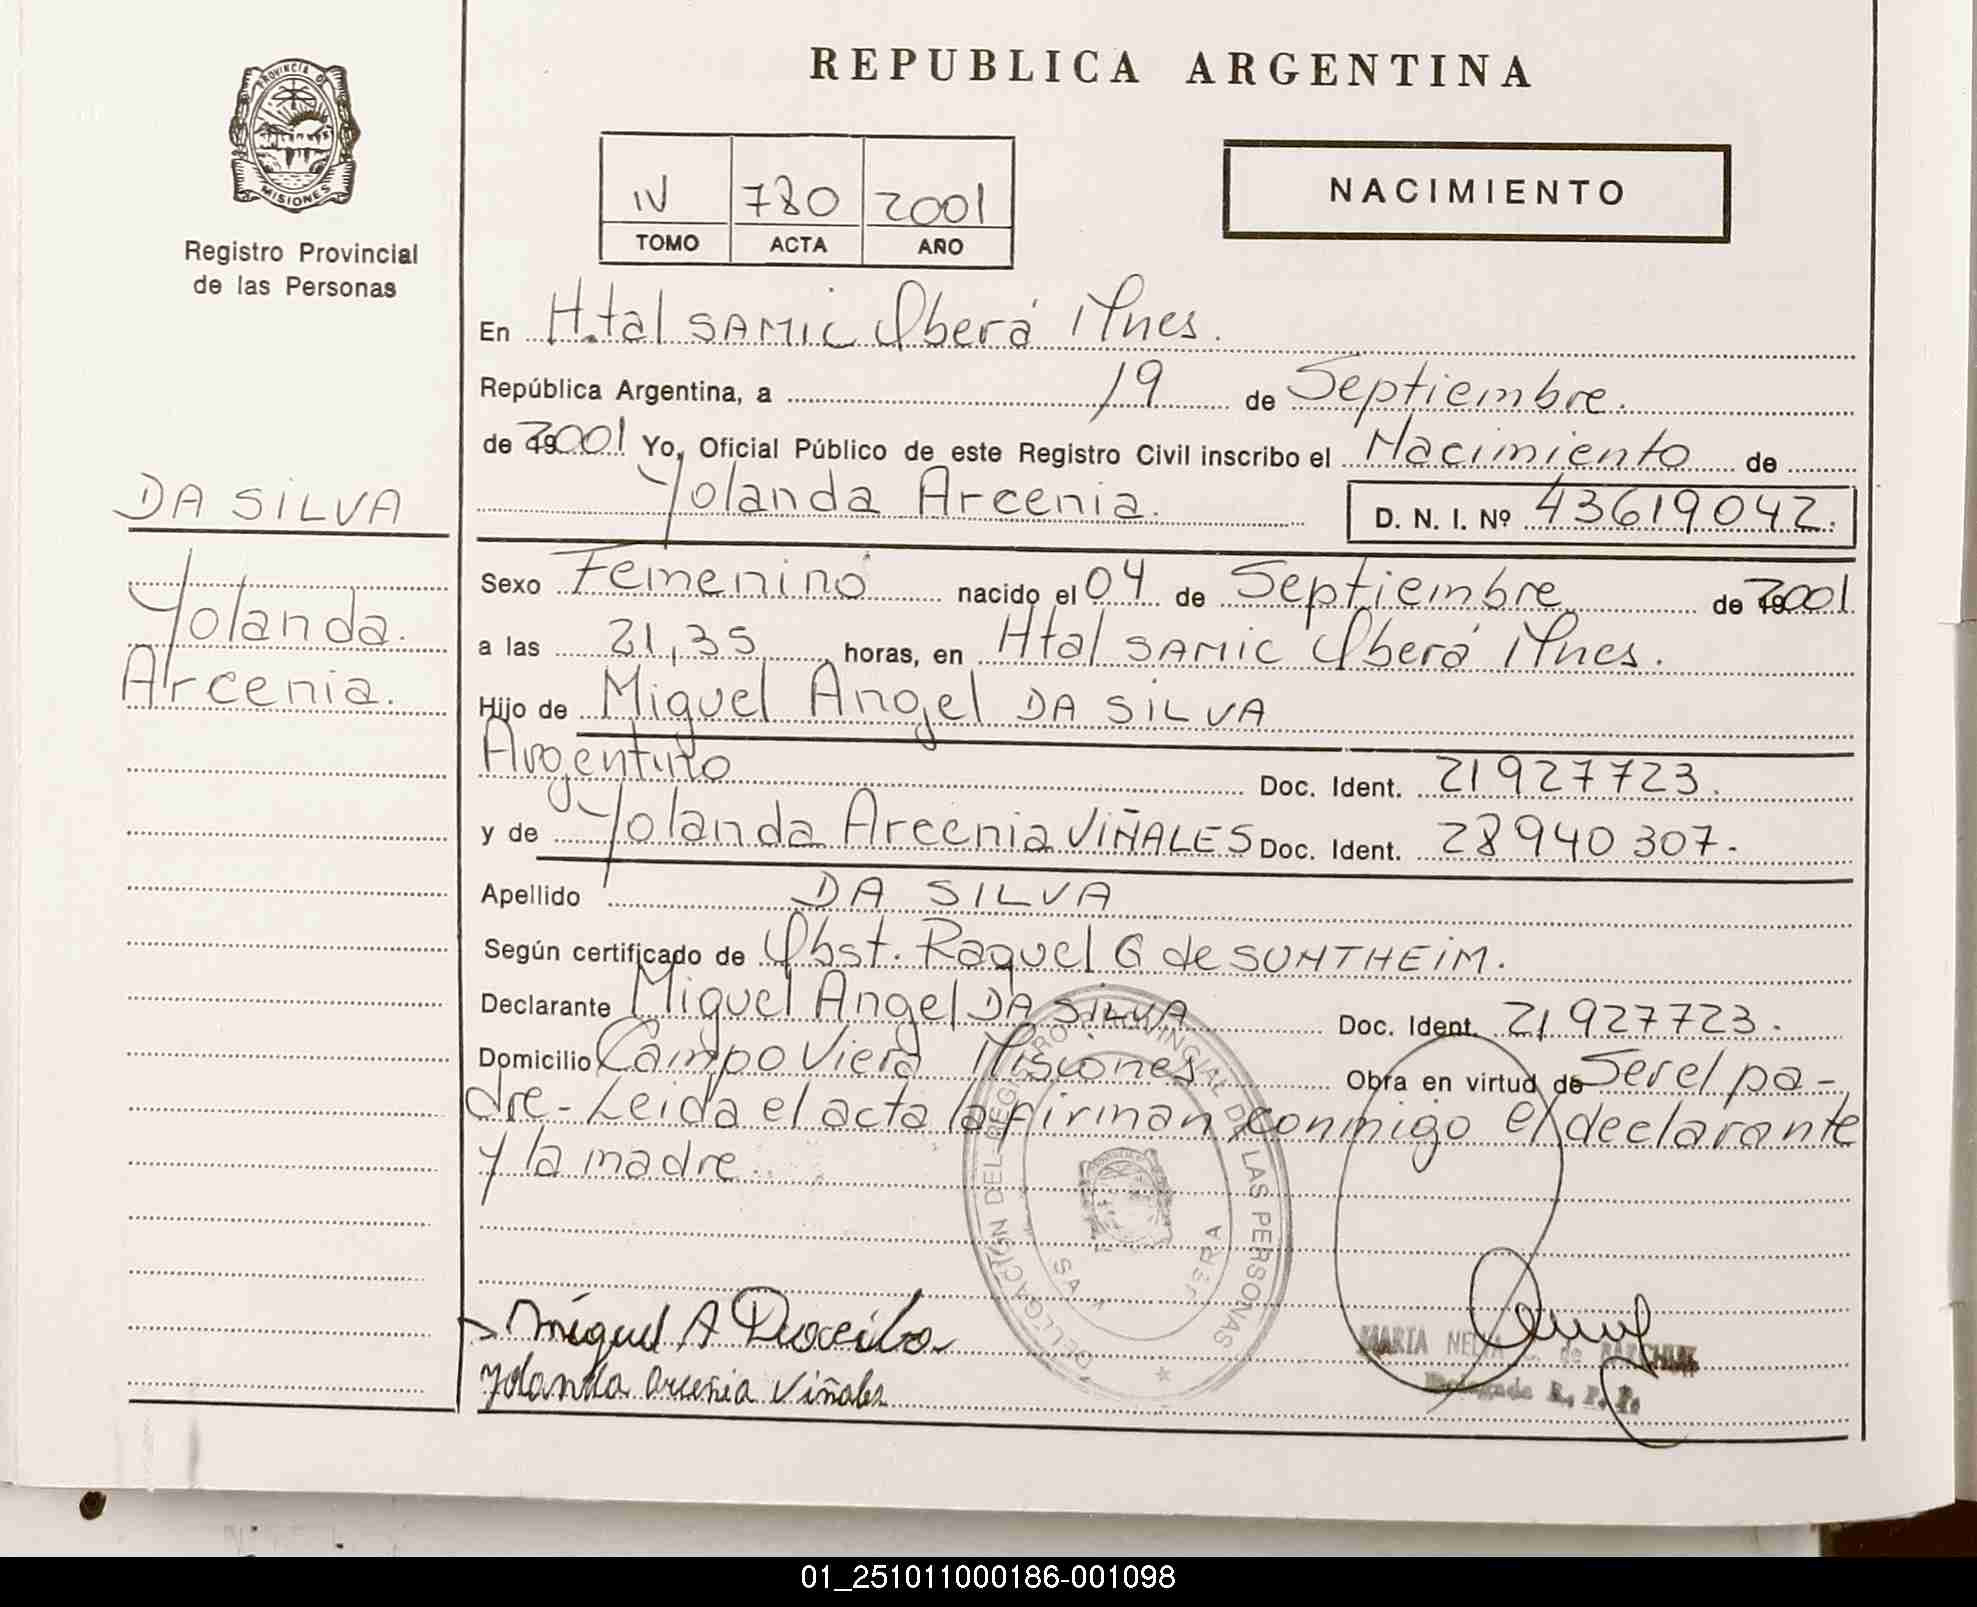 REPUBLICA ARGENTINA
PROVINCIA DE
MISIONES
Registro Provincial
de las Personas
IV 780 2001
TOMO ACTA AÑO
NACIMIENTO
En H.tal SAMIC Oberá Mnes.
República Argentina, a 19 de Septiembre.
de 2001 Yo, Oficial Público de este Registro Civil inscribo el Nacimiento de
Yolanda Arcenia. D. N. I. Nº 43619042.
DA SILVA
Yolanda.
Arcenia.
Sexo Femenino nacido el 04 de Septiembre de 2001
a las 21,35 horas, en Htal SAMIC Oberá Mnes.
Hijo de Miguel Angel DA SILVA
Argentino Doc. Ident. 21927723.
y de Yolanda Arcenia VIÑALES Doc. Ident. 28940307.
Apellido DA SILVA
Según certificado de Obst. Raquel G de SUNTHEIM.
Declarante Miguel Angel DA SILVA Doc. Ident. 21927723.
Domicilio Campo Viera Misiones Obra en virtud de Ser el pa-
dre- Leida el acta la firman conmigo el declarante
y la madre.
DELEGACIÓN DEL REGISTRO PROVINCIAL DE LAS PERSONAS
Miguel A
Yolanda Arcenia Viñales
MARTA de
Delegada R. P. P.
01_251011000186-001098